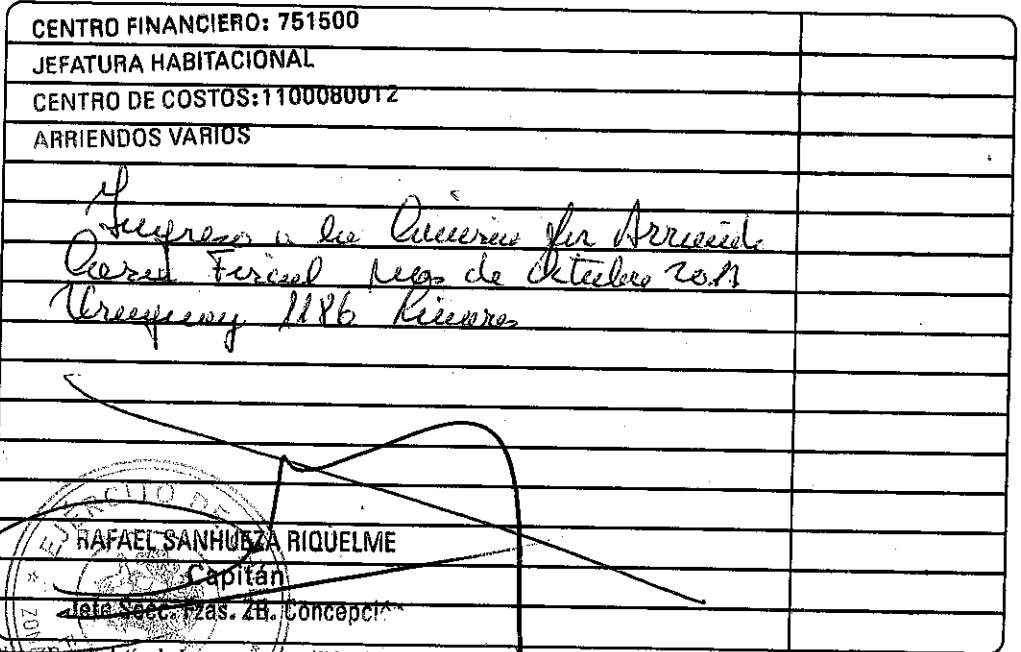 CENTRO FINANCIERO: 751500
JEFATURA HABITACIONAL
CENTRO DE COSTOS:1100080012
ARRIENDOS VARIOS
Ingreso a la por Arriendo
Fiscal mes de Octubre 2011
Uruguay 1186 Linares
EJERCITO DE
RAFAEL SANHUEZA RIQUELME
Capitán
Jefe Secc. Fzas. ZB. Concepci